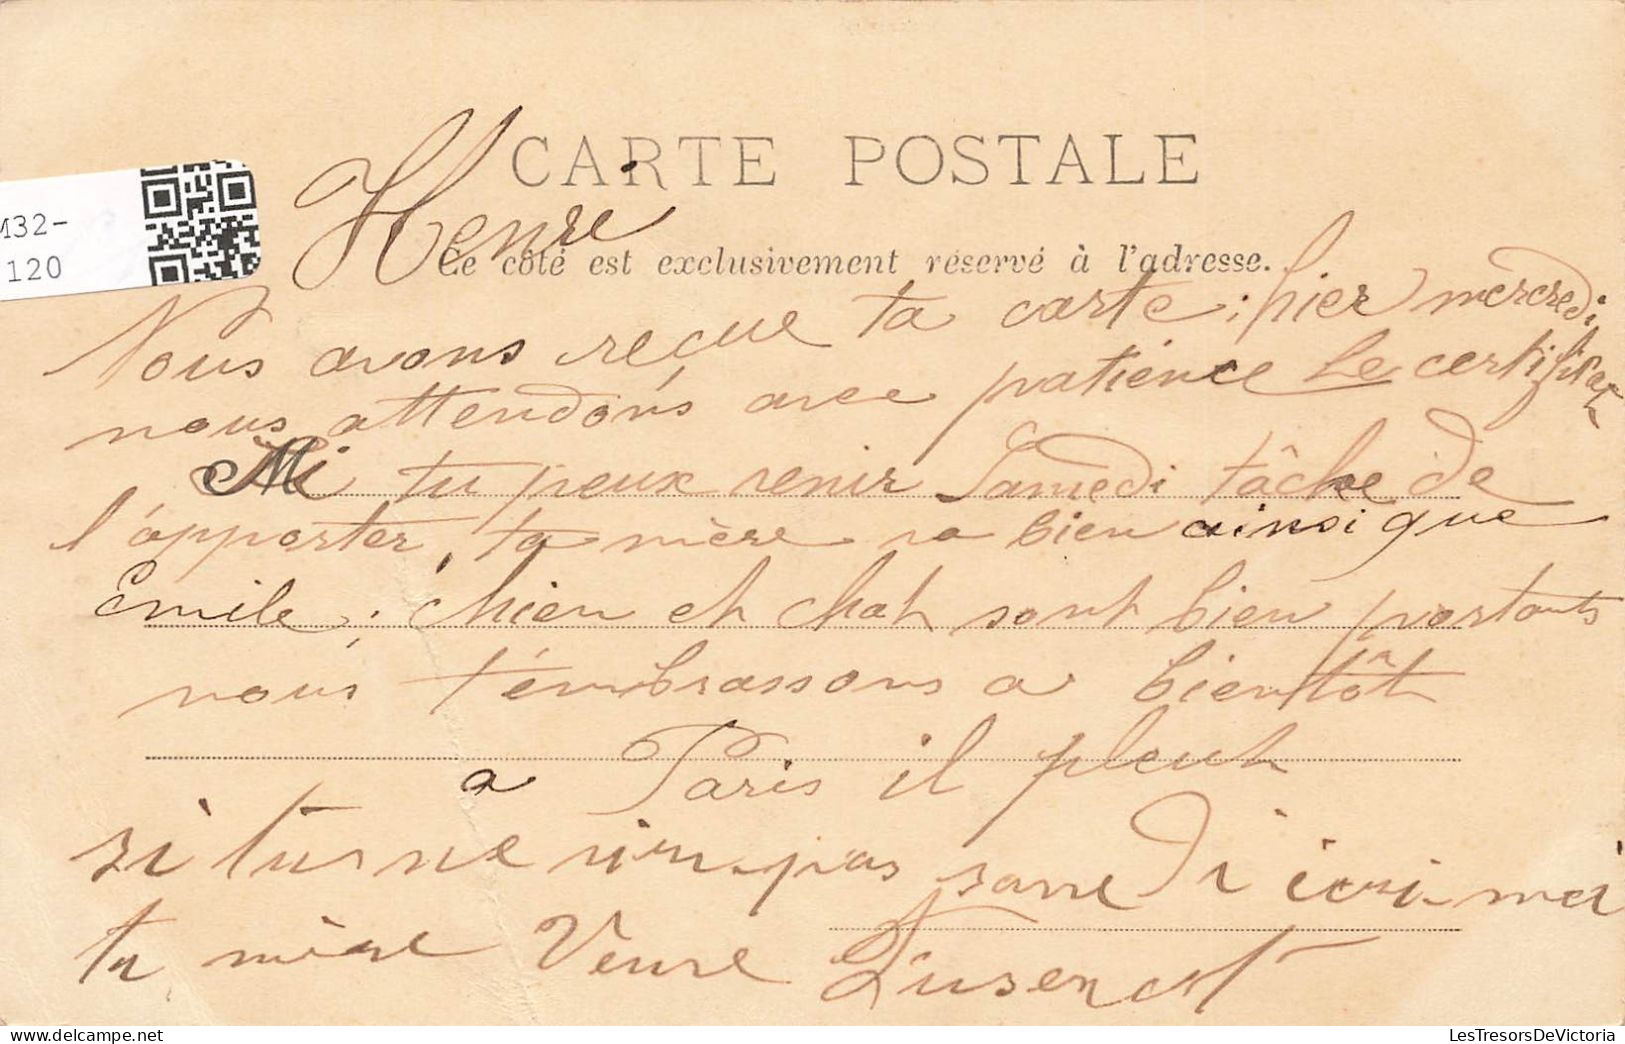 M32-
120
CARTE POSTALE
Henri
Ce côté est exclusivement réservé à l'adresse.
Nous avons reçue ta carte ; hier mercredi,
nous attendons avec patience le certificat
Si tu peux venir Samedi tâche de
l'apporter, ta mère va bien ainsi que
Emile ; chien et chat sont bien portants
nous t'embrassons a bientôt
a Paris il pleut
si tu ne vien pas samedi écri-moi
ta mère Veuve
LesTresorsDeVictoria.com